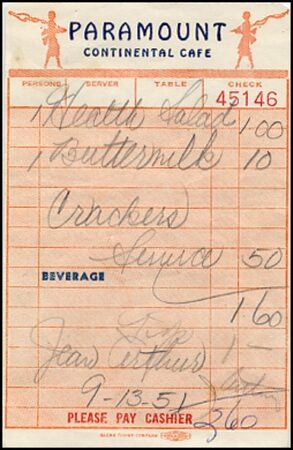 PARAMOUNT
CONTINENTAL CAFE
PERSONS SERVER TABLE CHECK
45146
1 Health Salad 1 00
1 Buttermilk 10
Crackers
Service 50
BEVERAGE
1.60
Tip 1 -
Jean Arthur
9-13-51
PLEASE PAY CASHIER 2 60